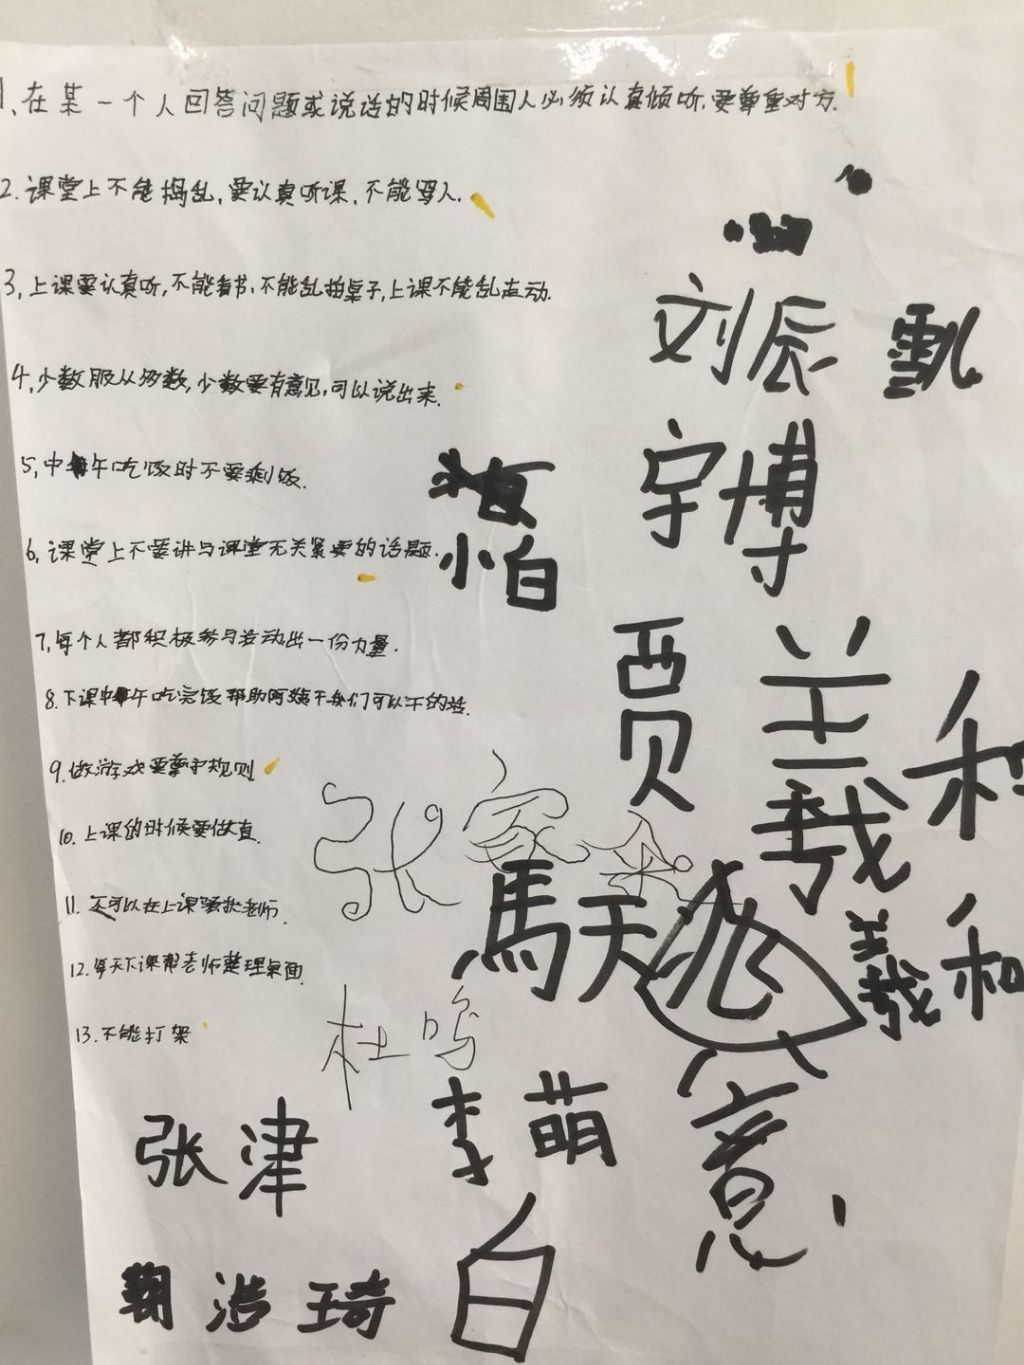 1、在某一个人回答问题或说话的时候周围人必须认真倾听,要尊重对方.
2.课堂上不能捣乱,要认真听课,不能骂人.
3,上课要认真听,不能看书,不能乱拍桌子,上课不能乱走动.
4,少数服从多数,少数要有意见,可以说出来.
5,中午吃饭时不要剩饭.
6,课堂上不要讲与课堂无关紧要的话题.
7,每个人都积极参与活动出一份力量.
8.下课中午吃完饭帮助阿姨干我们可以干的活.
9.做游戏要尊守规则
10.上课的时候要做直.
11.不可以在上课骚扰老师.
12.每天下课帮老师整理桌面
13.不能打架
刘辰
宇博
小白
贾 羲和
張家
馬天兆
羲和
杜鸣
李萌
意
张津
白
浩琦